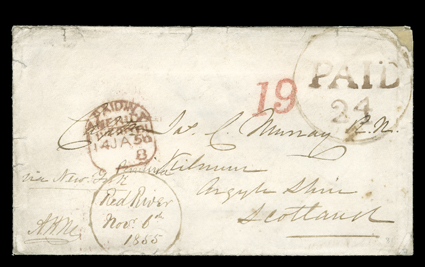 PAID
24
19
PAID
AMERICA
LIVERPOOL
14 JA 56
8
Jas. C. Murray R.N.
Kilmun
Argyle Shire
Scotland
via New York
Red River
Nov. 6th
1855